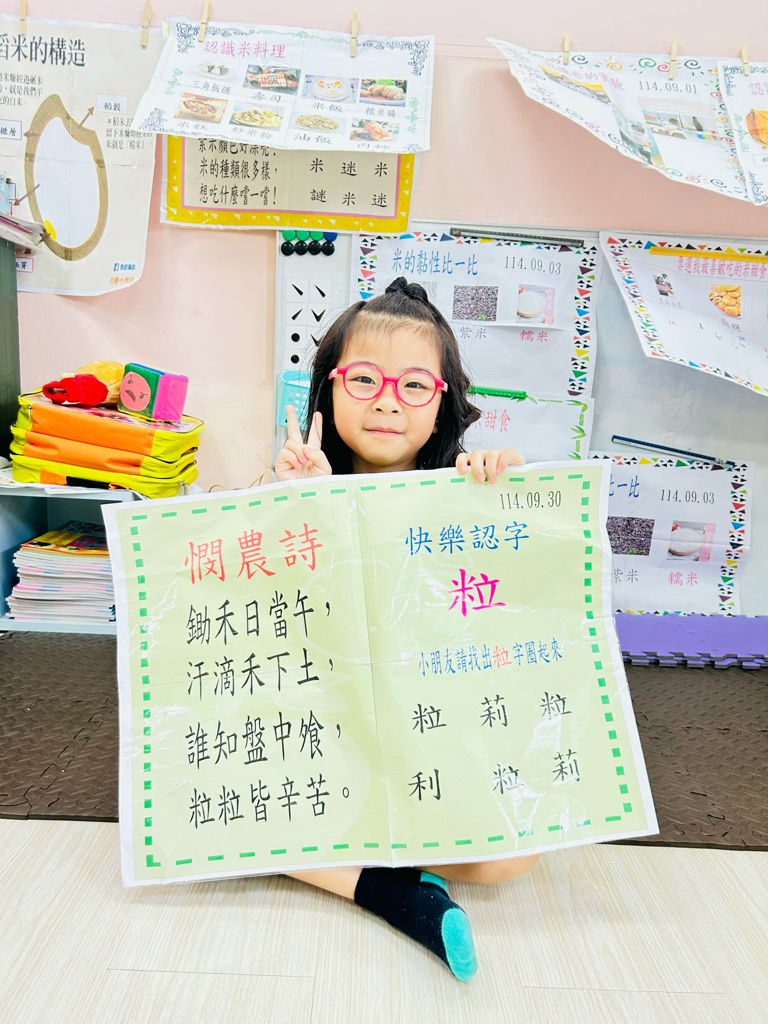 稻米的構造
糙層
稻穀
認識米料理
三角飯糰
壽司
米飯
糯米腸
米糕
炒米粉
油飯
肉粽
米的種類很多樣，
想吃什麼嚐一嚐！
米 迷 米
謎 米 迷
114.09.01
米的黏性比一比
114.09.03
紫米
糯米
票選我最喜歡吃的米甜食
甜食
比一比
114.09.03
紫米
糯米
憫農詩
鋤禾日當午，
汗滴禾下土，
誰知盤中飧，
粒粒皆辛苦。
114.09.30
快樂認字
粒
小朋友請找出粒字圈起來
粒 莉 粒
利 粒 莉